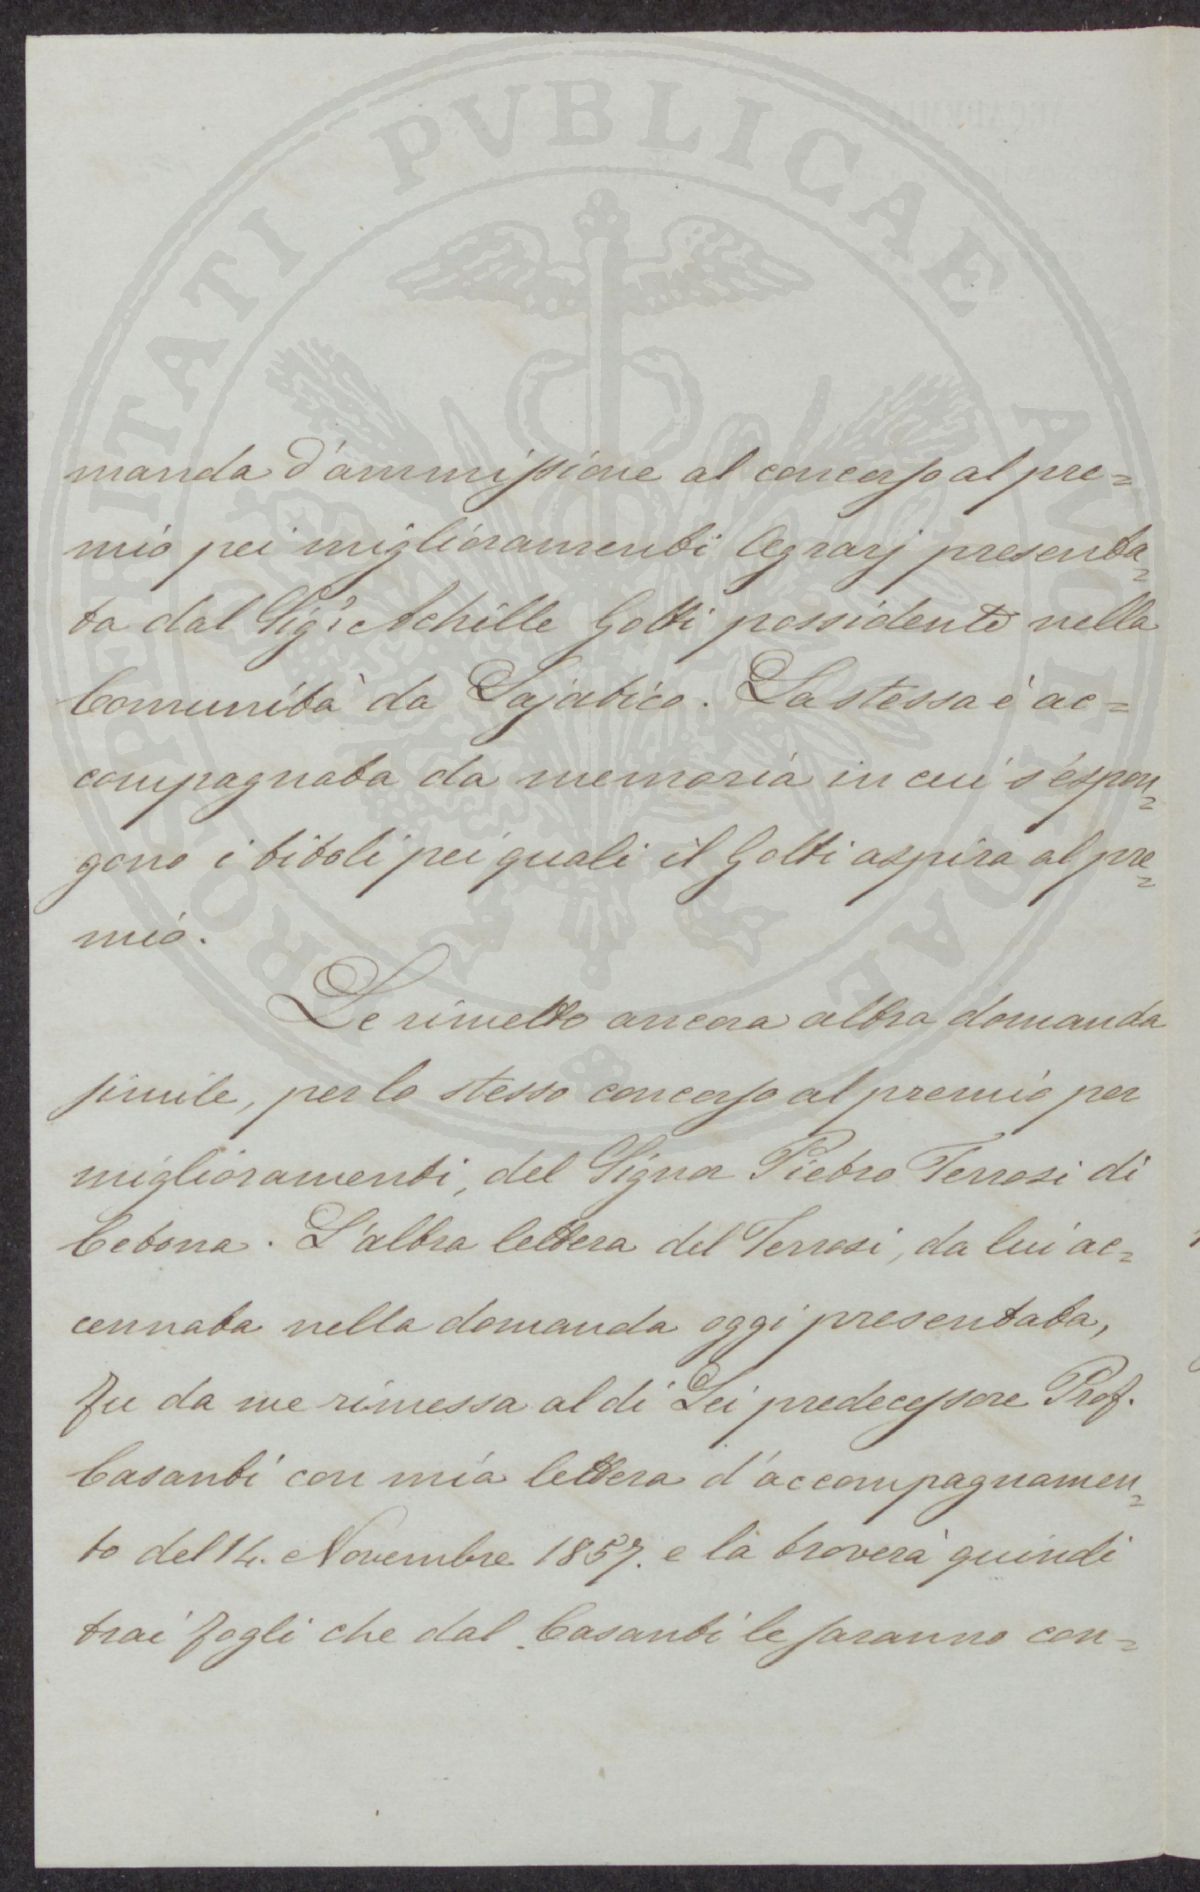 manda d'ammissione al concorso al pre=
mio pei miglioramenti Agrarj presenta=
ta dal Sig.r Achille Gotti possidente nella
Comunità da Lajatico. La stessa è ac=
compagnata da memoria in cui s'espon=
gono i titoli pei quali il Gotti aspira al pre=
mio.
Le rimetto ancora altra domanda
simile, per lo stesso concorso al premio per
miglioramenti, del Signor Pietro Terrosi di
Cetona. L'altra lettera del Terrosi, da lui ac=
cennata nella domanda oggi presentata,
fu da me rimessa al di Lei predecessore Prof.
Casanti con mia lettera d'accompagnamen=
to del 14. Novembre 1857. e la troverà quindi
trai fogli che dal Casanti le saranno con=
PROSPERITATI PVBLICAE AVGENDAE